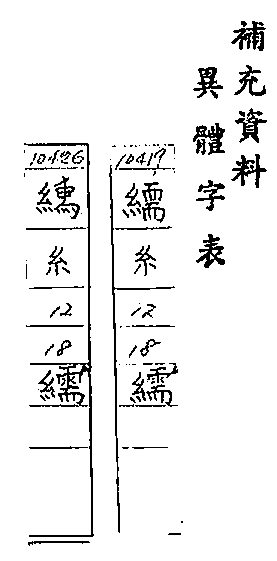 補充資料
異體字表
10419
糸
12
18
繻
10426
糸
12
18
繻